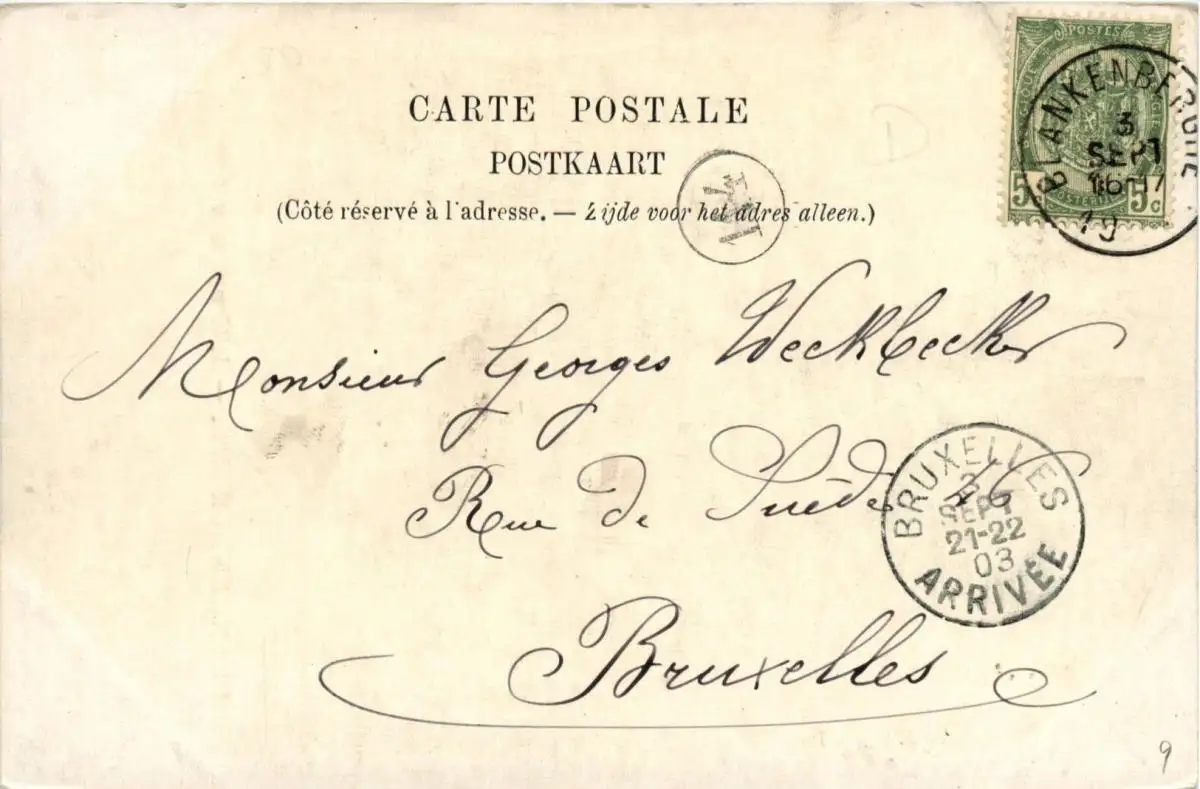 POSTES
BLANKENBERGHE
3
SEPT
16-17
19
5 C
5 C
CARTE POSTALE
POSTKAART
(Côté réservé à l'adresse. — Zijde voor het adres alleen.)
Monsieur Georges Weckbecker
Rue de Suède
Bruxelles
BRUXELLES
3
SEPT
21-22
03
ARRIVÉE
9